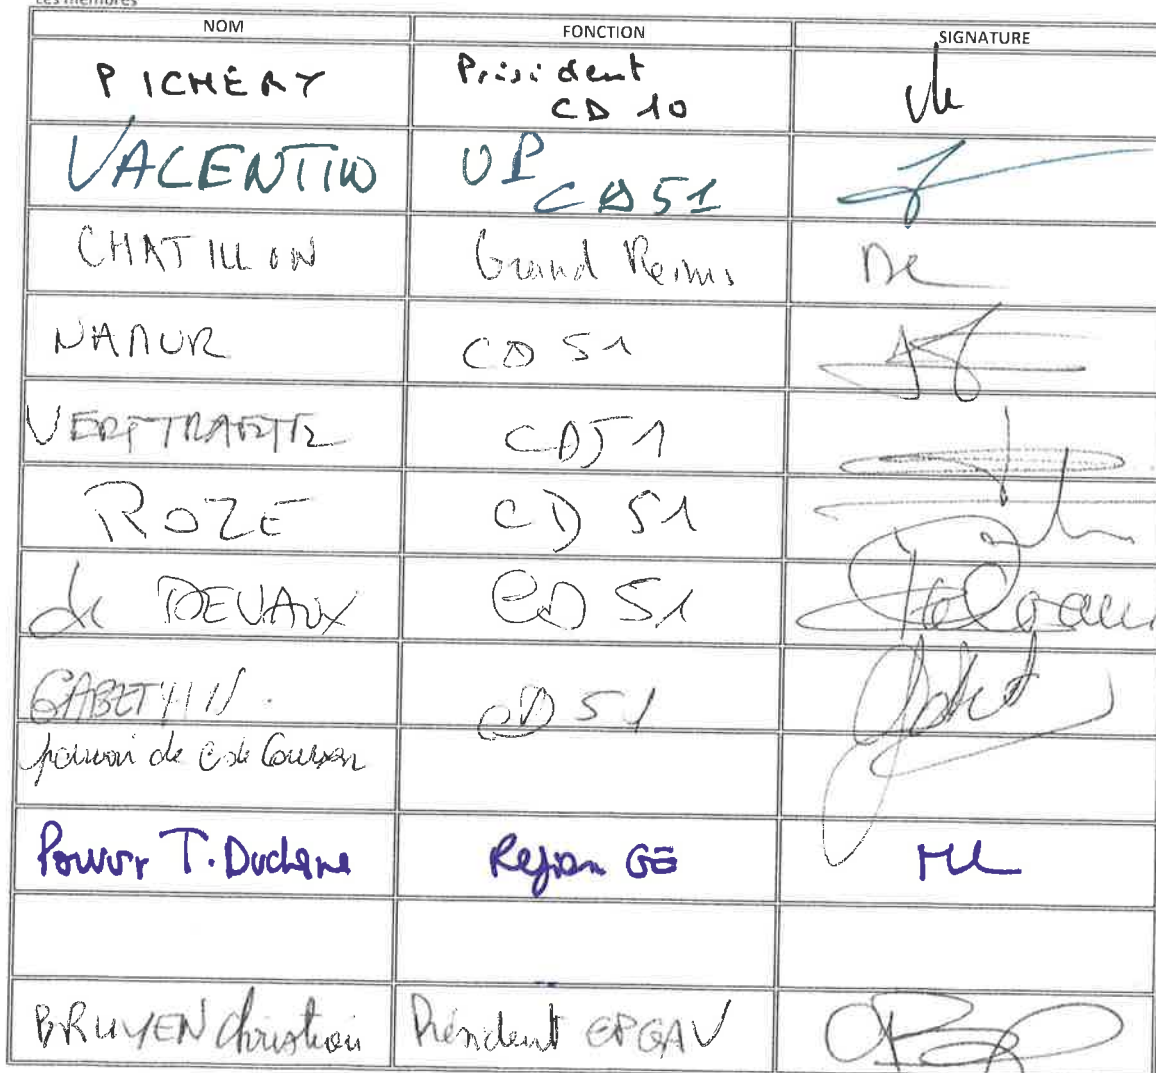 Les membres
NOM FONCTION SIGNATURE
PICHERY Président
CD 10
VALENTIN VP
CD51
CHATILLON Grand Reims
NAMUR CD 51
CD51
ROZE CD 51
de DEVAUX CD 51
CD 51
pouvoir de C de Courson
Pouvoir T. Duchêne Région GE
BRUYEN Christian Président EPGAV